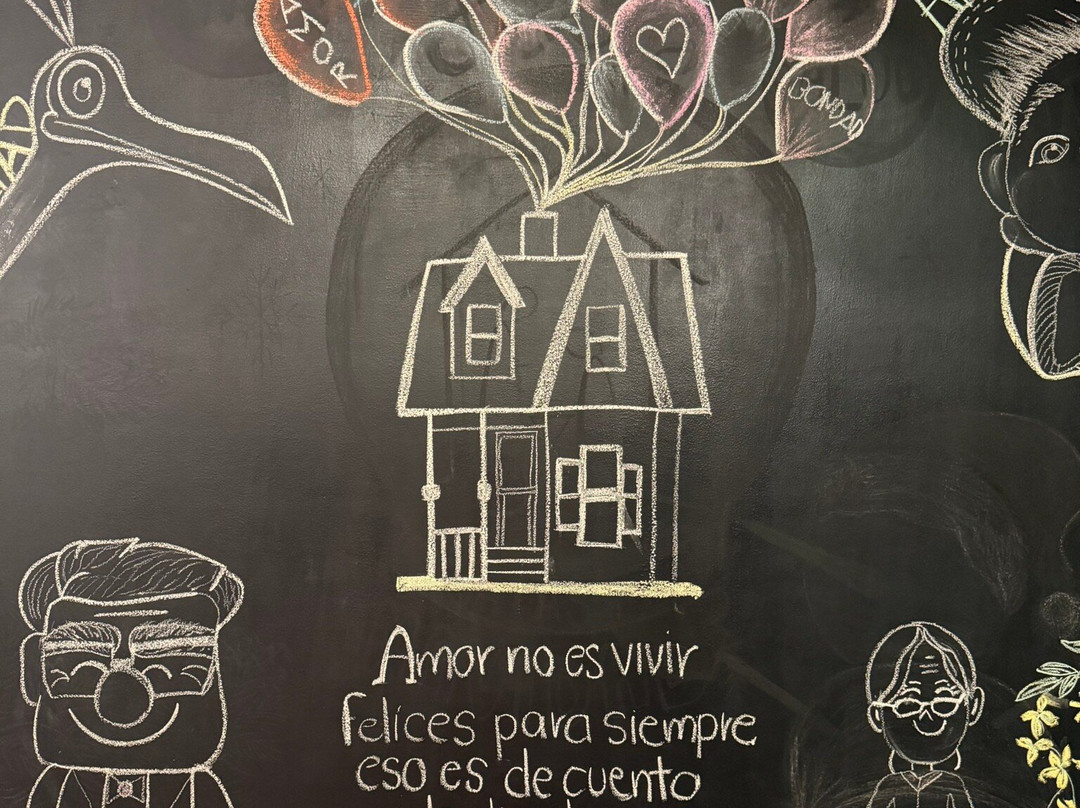 AMOR
BONDAD
Amor no es vivir
felices para siempre
eso es de cuento